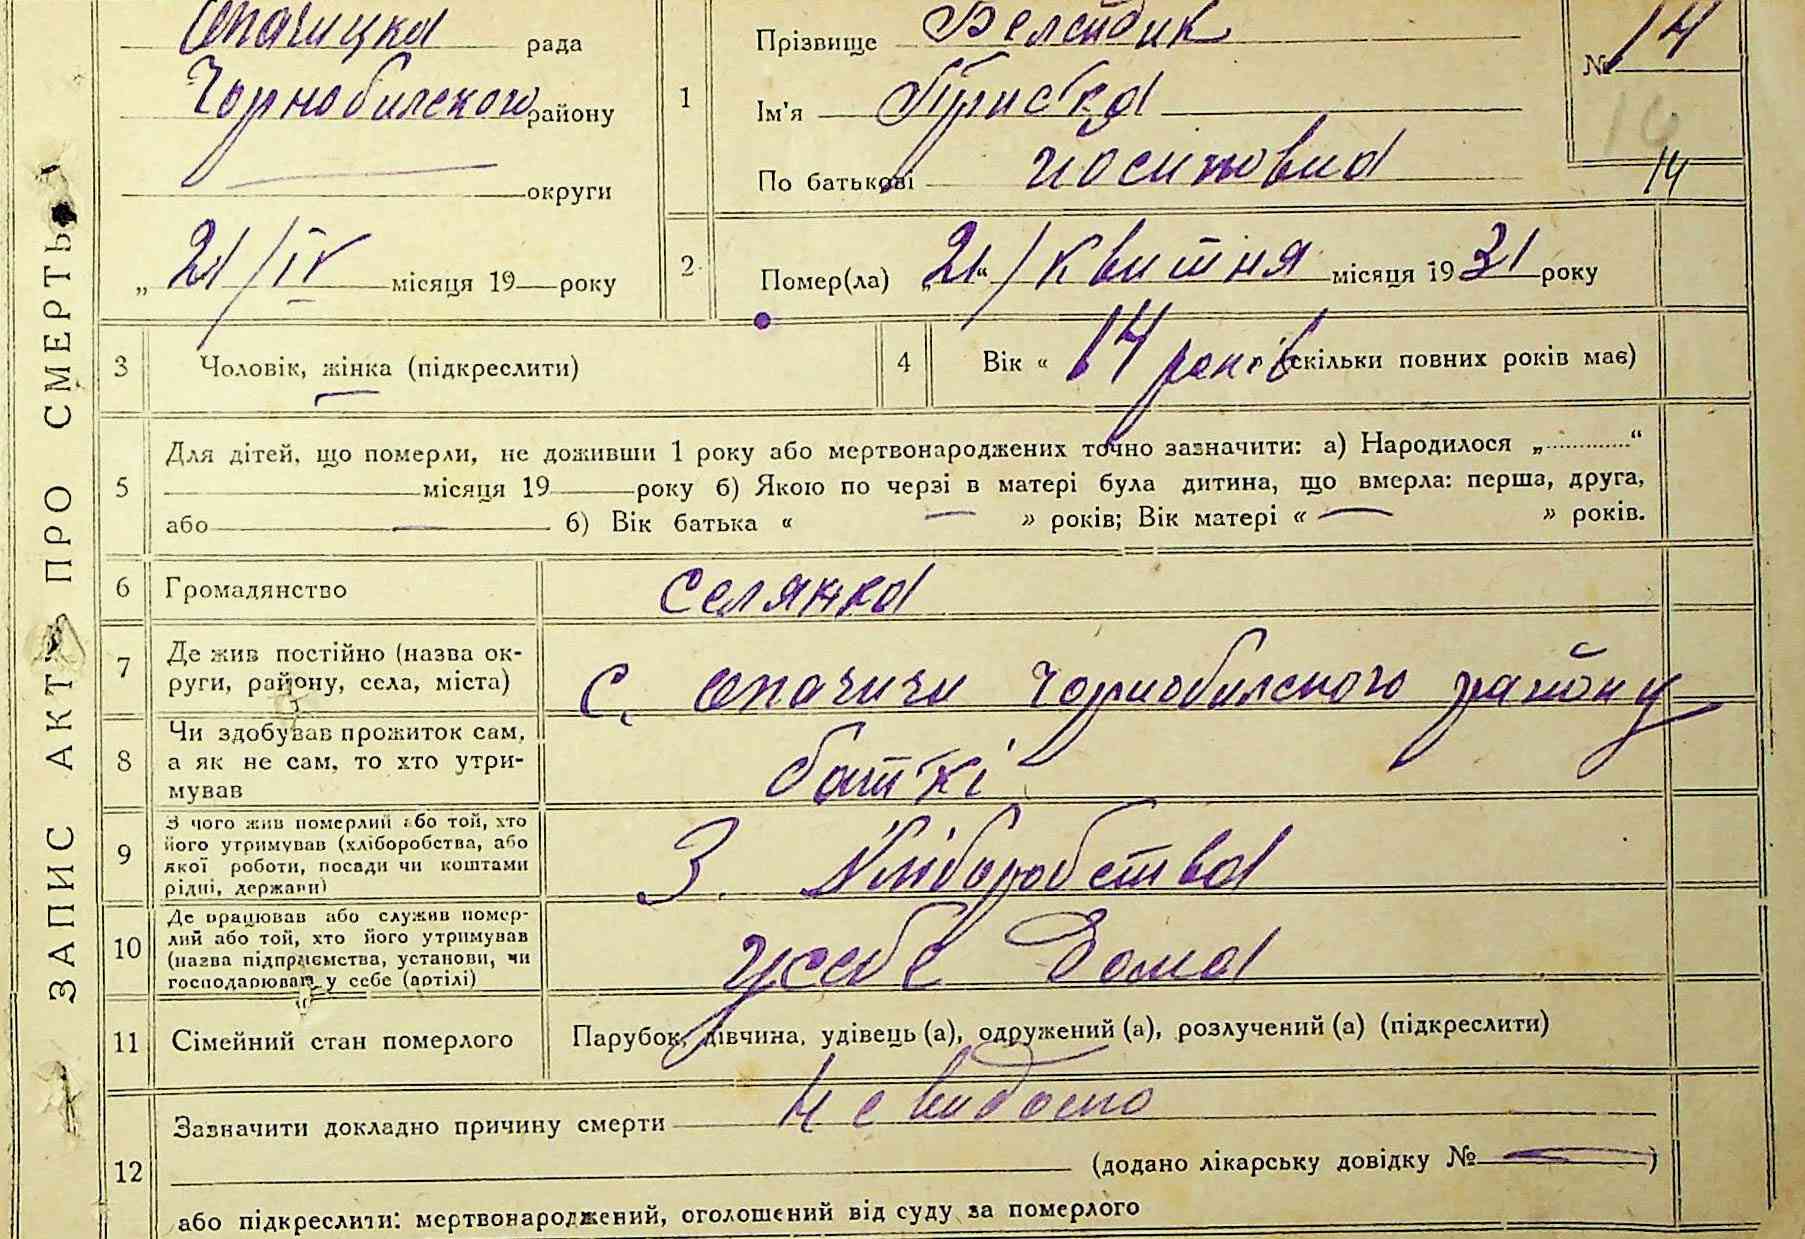 Опачицка рада
Чорнобилского району
округи
„ 21/IV місяця 19 року
ЗАПИС АКТУ ПРО СМЕРТЬ
1
Прізвище
Ім'я Приська
По батькові Йосиповна
№ 14
14
2
Помер(ла) „21“ / квитня місяця 1931 року
3 Чоловік, жінка (підкреслити)
4 Вік « 14 років (скільки повних років має)
5
Для дітей, що померли, не доживши 1 року або мертвонароджених точно зазначити: а) Народилося „ “
місяця 19 року б) Якою по черзі в матері була дитина, що вмерла: перша, друга,
або б) Вік батька « — » років; Вік матері « — » років.
6 Громадянство селянка
7 Де жив постійно (назва ок-
руги, району, села, міста) с. Опачичи Чорнобилского району
8 Чи здобував прожиток сам,
а як не сам, то хто утри-
мував батькі
9 З чого жив померлий або той, хто
його утримував (хліборобства, або
якої роботи, посади чи коштами
рідні, держави) З хліборобства
10 Де працював або служив помер-
лий або той, хто його утримував
(назва підприємства, установи, чи
господарював у себе (артілі) усебе дома
11 Сімейний стан померлого Парубок, дівчина, удівець (а), одружений (а), розлучений (а) (підкреслити)
12
Зазначити докладно причину смерти невидомо
(додано лікарську довідку № — )
або підкреслити: мертвонароджений, оголошений від суду за померлого